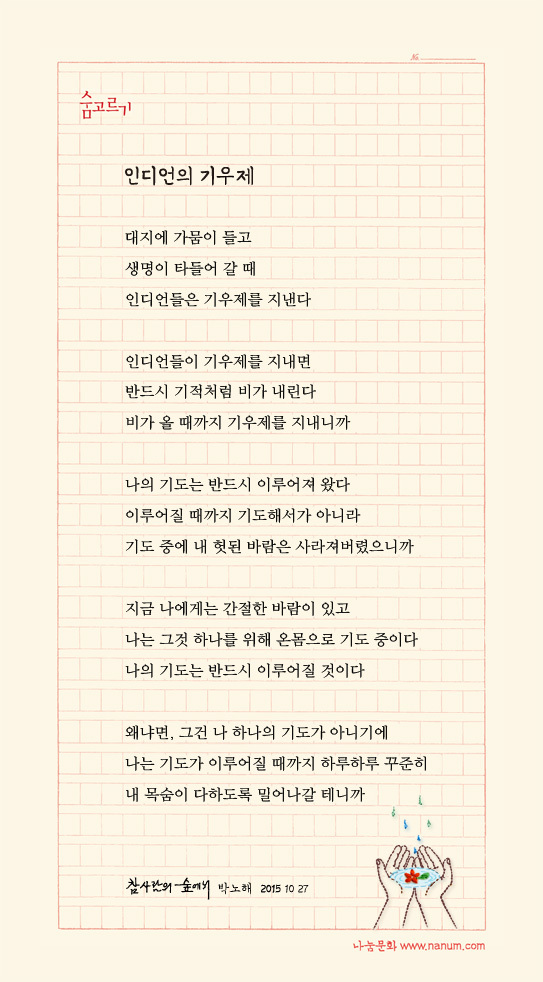 №
숨고르기
인디언의 기우제
대지에 가뭄이 들고
생명이 타들어 갈 때
인디언들은 기우제를 지낸다
인디언들이 기우제를 지내면
반드시 기적처럼 비가 내린다
비가 올 때까지 기우제를 지내니까
나의 기도는 반드시 이루어져 왔다
이루어질 때까지 기도해서가 아니라
기도 중에 내 헛된 바람은 사라져버렸으니까
지금 나에게는 간절한 바람이 있고
나는 그것 하나를 위해 온몸으로 기도 중이다
나의 기도는 반드시 이루어질 것이다
왜냐면, 그건 나 하나의 기도가 아니기에
나는 기도가 이루어질 때까지 하루하루 꾸준히
내 목숨이 다하도록 밀어나갈 테니까
참사람의 숲에서 박노해 2015 10 27
나눔문화 www.nanum.com